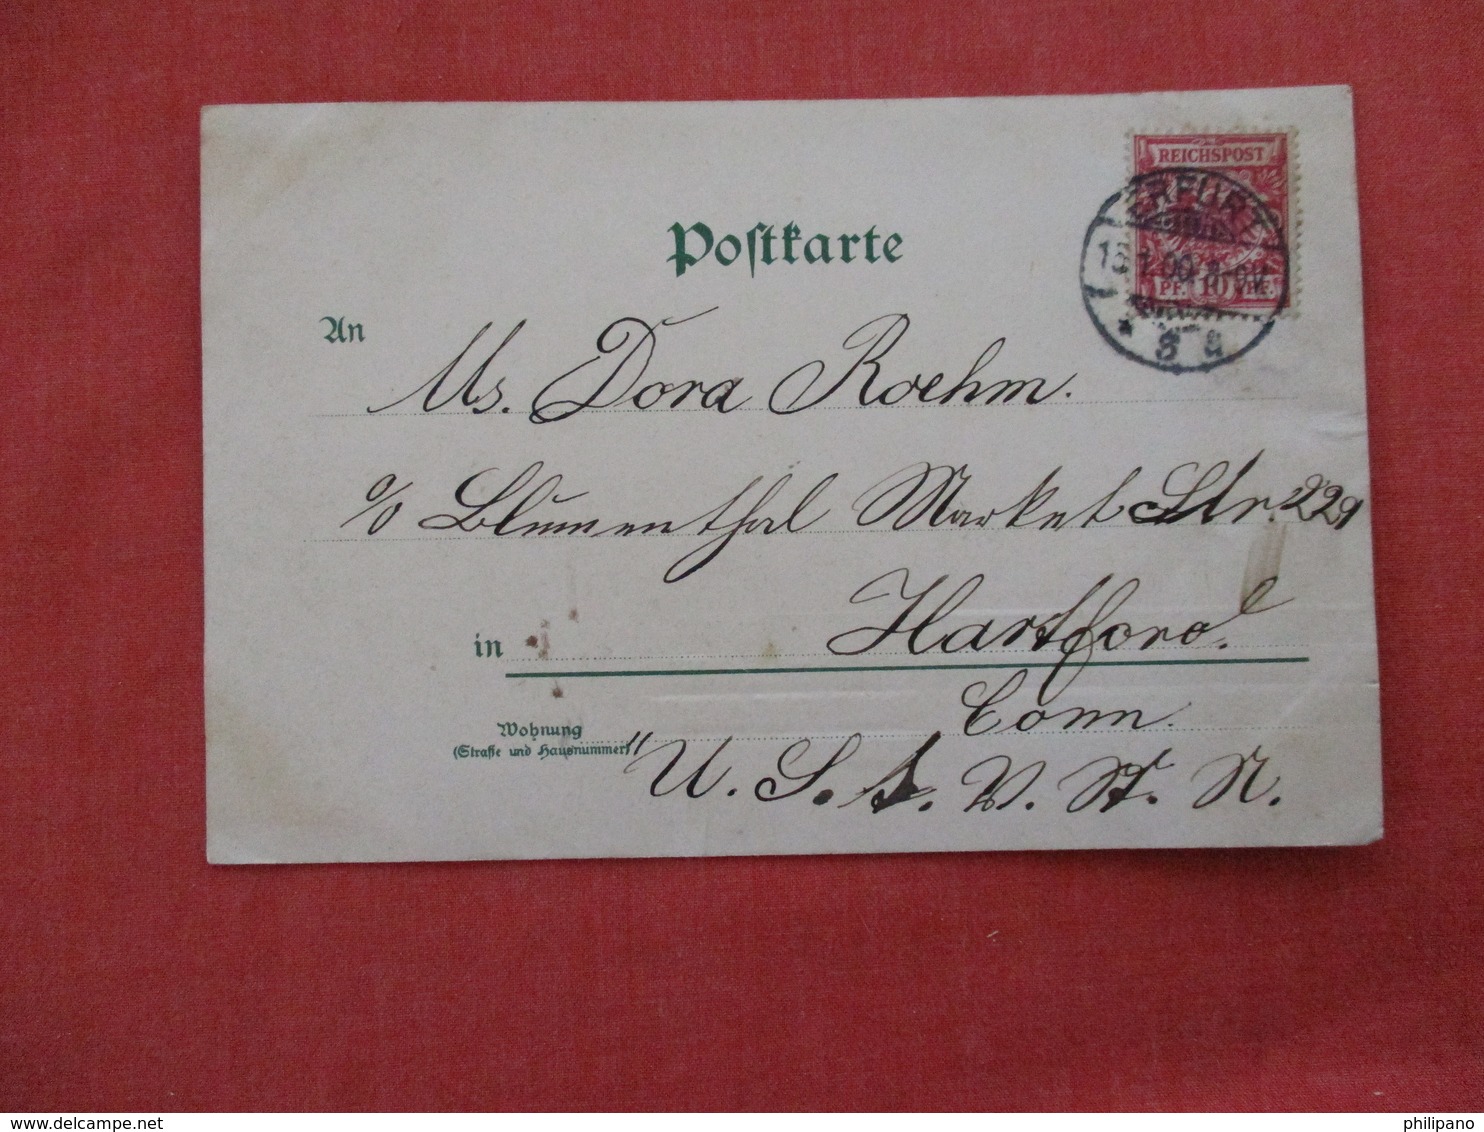 REICHSPOST
ERFURT
PF. 10 PF.
Postkarte
An
Ms. Dora Roehm.
% Blumenthal Market Str. 229
in Hartford.
Conn.
Wohnung
(Straße und Hausnummer)
"U. S. A. V. St. N.
philipano